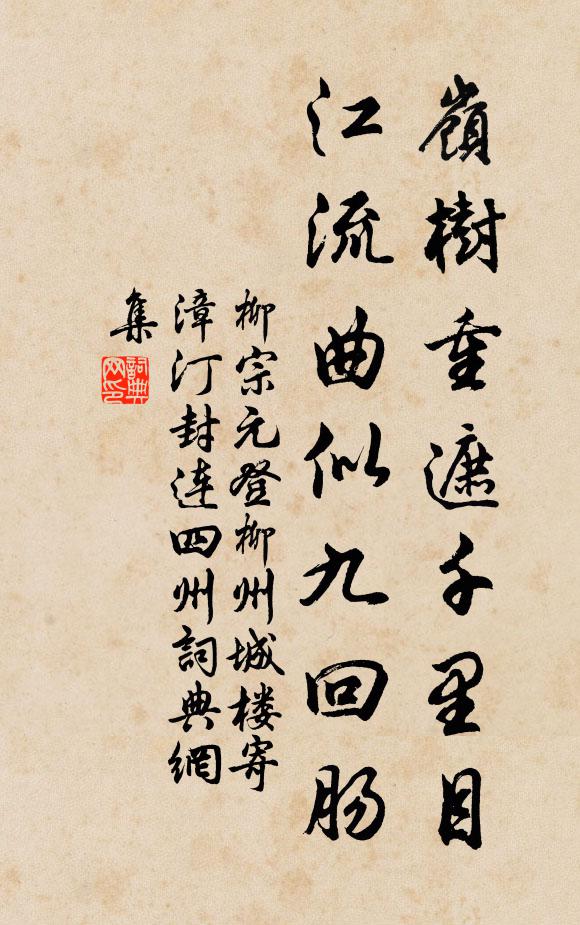 嶺樹重遮千里目
江流曲似九回肠
柳宗元登柳州城楼寄
漳汀封连四州詞典網
集
詞典
网印